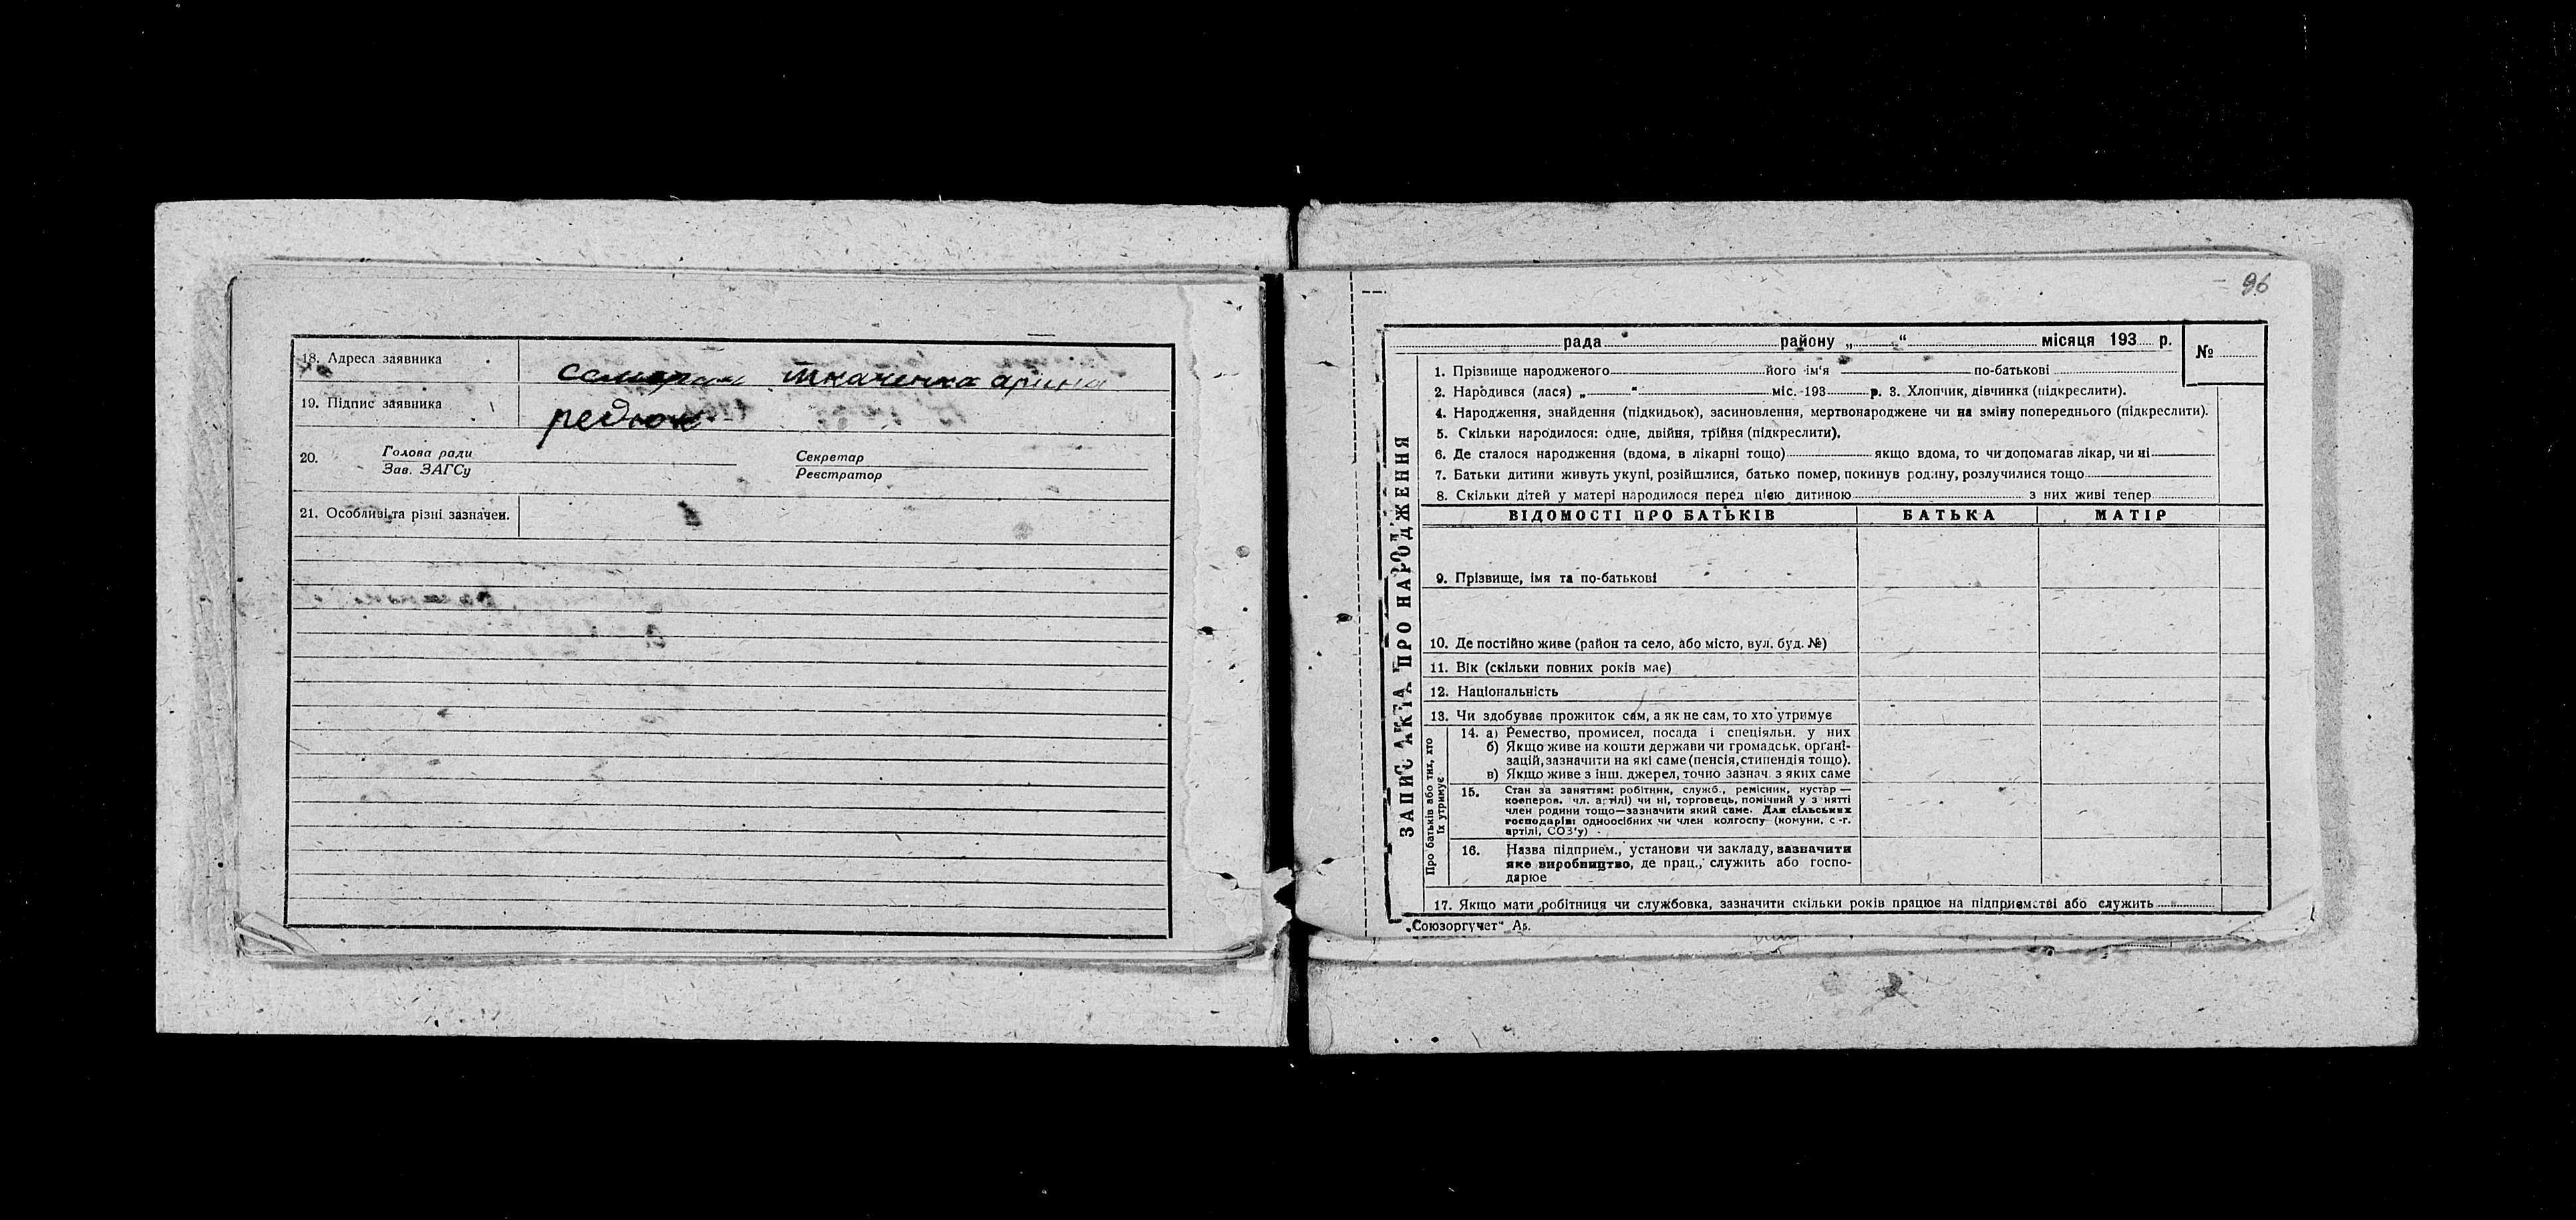 18. Адреса заявника ткаченка арина
19. Підпис заявника редюк
20. Голова ради Секретар
Зав. ЗАГСу Реєстратор
21. Особливі та різні зазначен.
96
рада району „ “ місяця 193 р.
№
1. Прізвище народженого його ім'я по-батькові
2. Народився (лася) „ “ міс. 193 р. 3. Хлопчик, дівчинка (підкреслити).
4. Народження, знайдення (підкидьок), засиновлення, мертвонароджене чи на зміну попереднього (підкреслити).
5. Скільки народилося: одне, двійня, трійня (підкреслити).
6. Де сталося народження (вдома, в лікарні тощо) якщо вдома, то чи допомагав лікар, чи ні
7. Батьки дитини живуть укупі, розійшлися, батько помер, покинув родину, розлучилися тощо
8. Скільки дітей у матері народилося перед цією дитиною з них живі тепер
ВІДОМОСТІ ПРО БАТЬКІВ БАТЬКА МАТІР
9. Прізвище, імя та по-батькові
10. Де постійно живе (район та село, або місто, вул. буд. №)
11. Вік (скільки повних років має)
12. Національність
13. Чи здобуває прожиток сам, а як не сам, то хто утримує
14. а) Ремество, промисел, посада і спеціяльн. у них
б) Якщо живе на кошти держави чи громадськ. органі-
зацій, зазначити на які саме (пенсія, стипендія тощо).
в) Якщо живе з інш. джерел, точно зазнач. з яких саме
15. Стан за заняттям: робітник, служб., ремісник, кустар —
кооперов. чл. артілі) чи ні, торговець, помічний у з нятті
член родини тощо—зазначити який саме. Для сільських
господарів: одноосібних чи член колгоспу (комуни, с-г.
артілі, СОЗ'у)
16. Назва підприєм., установи чи закладу, зазначити
яке виробництво, де прац., служить або госпо-
дарює
17. Якщо мати робітниця чи службовка, зазначити скільки років працює на підприємстві або служить
Про батьків або тих, хто
їх утримує
ЗАПИС АКТА ПРО НАРОДЖЕННЯ
„Союзоргучет“ Ар.